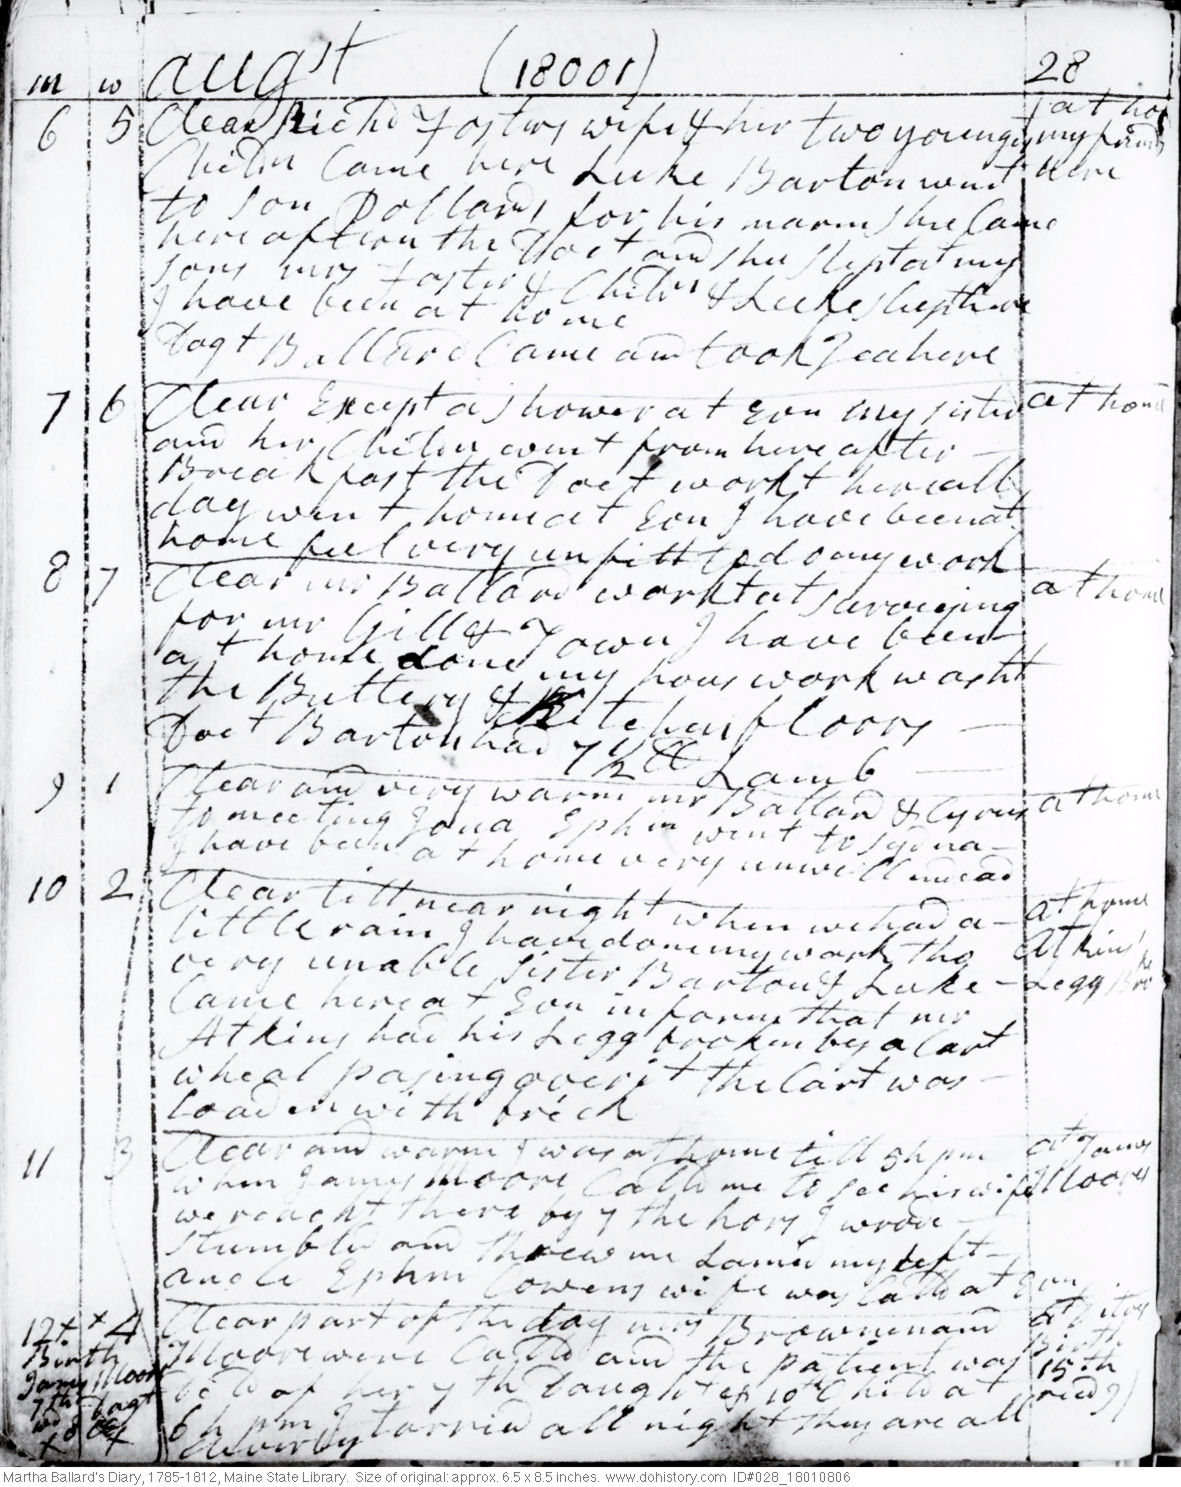 m w augst (18001) 28
6 5 Clear Richd Fosters wife & her two youngst at home my frinds
Childn Came here Luke Barton went here
to son Pollards for his marm shee Came
here aftern the Doct and shee slept at my
sons mrs Foster & Childn & Luke slept here
I have been at home
Dagt Ballard Came and took Tea here
7 6 Clear Except a shower at Evn my sister at home
and her Childn went from here after
Breakfast the Doct workt here all
day went home at Evn I have been at
home feel very unfitt to do my work
8 7 Clear mr Ballard workt at surveying at home
for mr Gill & Town I have been
at home done my hous work washt
the Buttery & Kitchen floors
Doct Barton had 7 1/2 lb Lamb
9 1 Clear and very warm mr Ballard & Cyrus at home
to meeting Jona Ephm went to
I have been at home very unwell indead
10 2 Clear till near night when we had a at home
little rain I have done my work tho Atkins
very unable sister Barton & Luke Legg Bro
Came here at Evn inform that mr
Atkins had his Legg broken by a Cart
wheal pasing over it the Cart was
loaden with brick
11 3 Clear and warm I was at home till 5 h pm at James
when James Moore Calld me to see his wife Moores
we reacht there by 7 the hors I wrode
stumbld and threw me Lamed my left
ancle Ephm Cowens wife was Calld at Evn
12 x x 4 Clear part of the day mrs Brown and at Ditos
Birth Moore were Calld and the patient was Birth
James Moor deld of her 7th Daught & 10th Child at 15th
7th Dagt 6 h pm I tarried all night they are all
x x cleverly